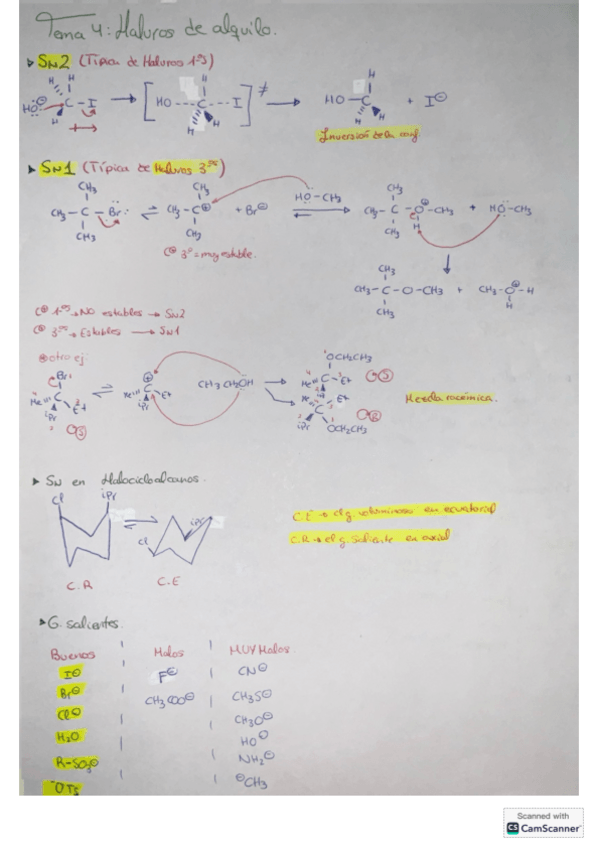 Tema 4: Haluros de alquilo.
SN2 (Típica de Haluros 1ºs)
HO⊖ C - I → [HO --- C --- I]≠ → HO - C + I⊖
H H H H H H H H
Inversión de la conf.
SN1 (Típica de Haluros 3ºs)
CH3 CH3 CH3
CH3 - C - Br: ⇌ CH3 - C⊕ + Br⊖ HO - CH3 CH3 - C - O⊕ - CH3 + HO - CH3
CH3 CH3 CH3 H
C⊕ 3º = muy estable.
CH3
CH3 - C - O - CH3 + CH3 - O⊕ - H
CH3 H
C⊕ 1ºs → No estables → SN2
C⊕ 3ºs → Estables → SN1
otro ej:
OCH2CH3
Br C⊕ CH3CH2OH Me C Et S
Me C Et Me iPr Et iPr
iPr S Me C Et R
iPr OCH2CH3
Mezcla racémica.
SN en Halocicloalcanos.
Cl iPr ⇌ Cl iPr
C.R C.E
C.E → el g. voluminoso en ecuatorial
C.R → el g. saliente en axial
G. salientes.
Buenos Malos MUY Malos.
I⊖ F⊖ CN⊖
Br⊖ CH3COO⊖ CH3S⊖
Cl⊖ CH3O⊖
H2O HO⊖
R-SO3⊖ NH2⊖
-OTs ⊖CH3
Scanned with
CS CamScanner